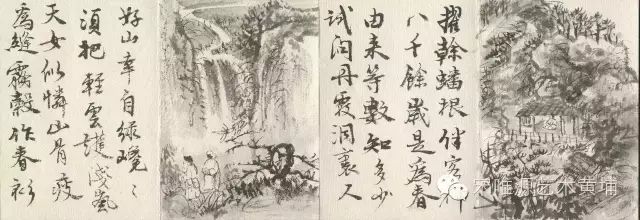 擢幹蟠根伴
八千餘歲是為春
由来等數知多少
試問丹霞洞裏人
好山幸自綠巉〻
須把輕雲護淺嵐
天女似憐山骨瘦
為縫霧縠作春衫
艺术黄埔